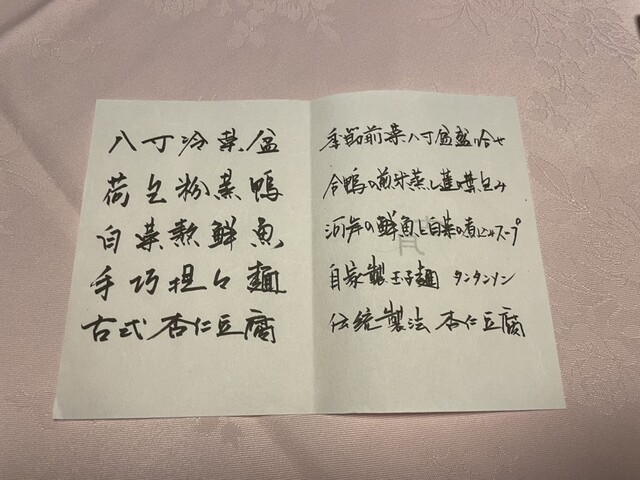 八寸冷菜盆
荷包粉蒸鴨
白菜熬鮮魚
手巧担々麺
古式杏仁豆腐
季節前菜八寸盆盛り合せ
合鴨の煎り米蒸し蓮の葉包み
河岸の鮮魚と白菜の煮込みスープ
自家製玉子麺 タンタンメン
伝統製法 杏仁豆腐